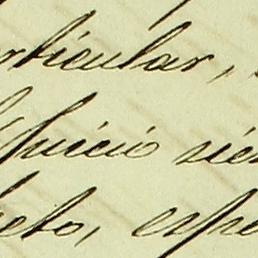 rticular,
juicio sien
eto, espe